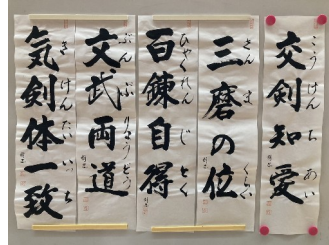 交剣知愛
こうけんちあい
三磨の位
さんまくらい
百錬自得
ひゃくれんじとく
文武両道
ぶんぶりょうどう
気剣体一致
きけんたいいっち